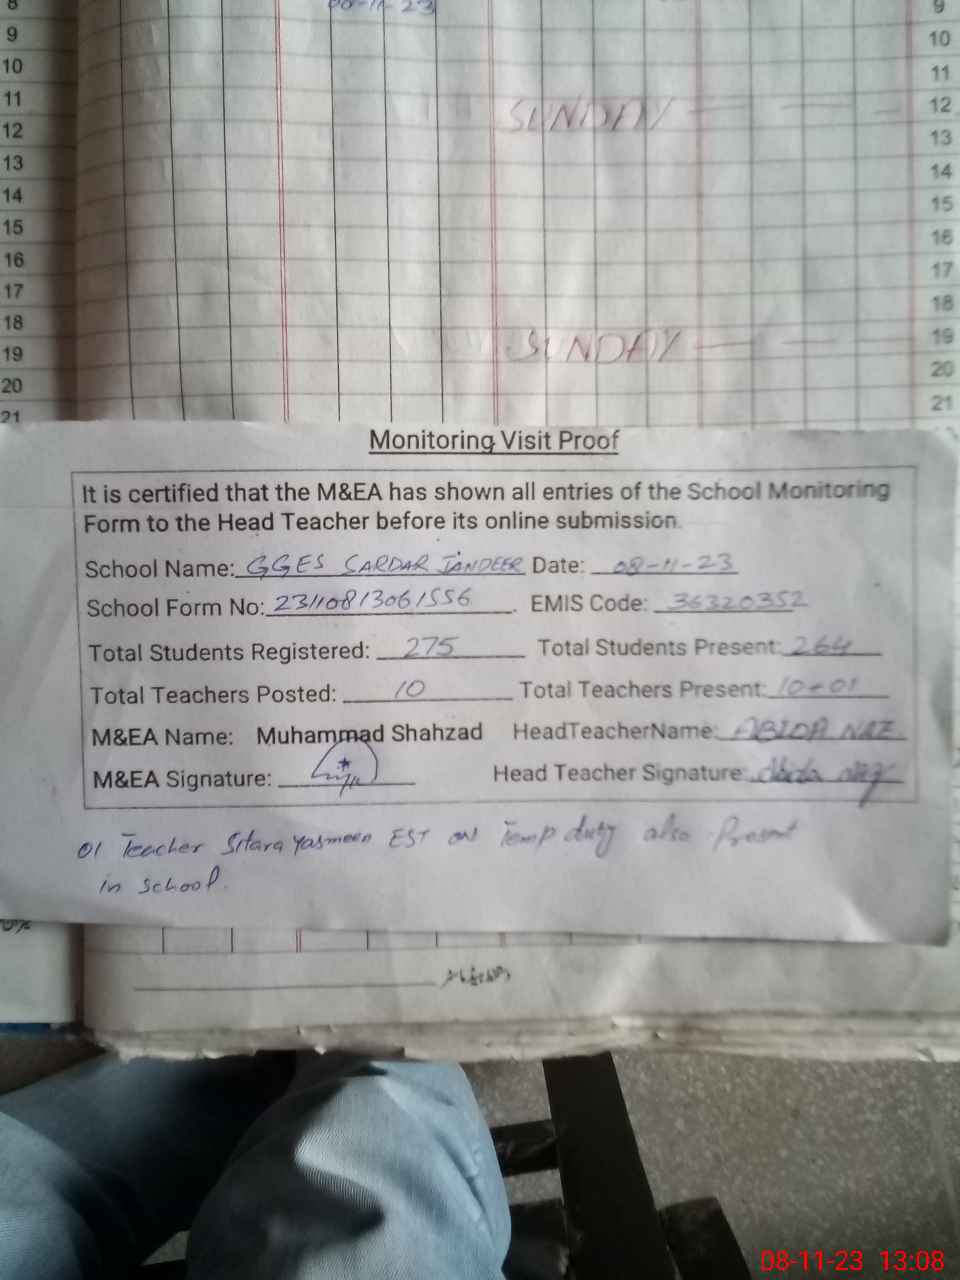 8
9
10
11
12
13
14
15
16
17
18
19
20
21
08-11-23
SUNDAY
SUNDAY
9
10
11
12
13
14
15
16
17
18
19
20
21
Monitoring Visit Proof
It is certified that the M&EA has shown all entries of the School Monitoring
Form to the Head Teacher before its online submission.
School Name: GGES SARDAR JANDEER Date: 08-11-23
School Form No: 23110813061556 EMIS Code: 36320352
Total Students Registered: 275 Total Students Present: 264
Total Teachers Posted: 10 Total Teachers Present: 10+01
M&EA Name: Muhammad Shahzad HeadTeacherName: ABIDA NAZ
M&EA Signature: Head Teacher Signature: Abida Naz
01 Teacher Sitara Yasmeen EST on Temp duty also Present
in school.
08-11-23 13:08